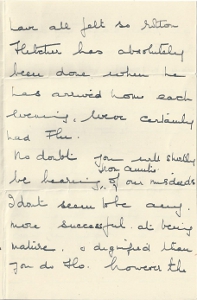 have all felt so often
Fletcher has absolutely
been done when he
has arrived home each
evening, &
certainly
had Flu.
No doubt you will shortly
from Auntie
be hearing of our misdeeds
I don't seem to be any
more successful at being
native & dignified than
you do tho. however the